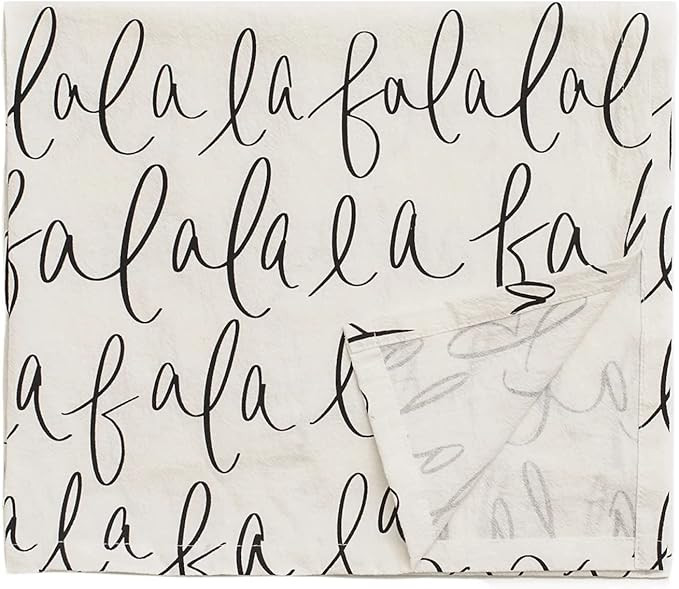 lala la falalal
falalala la fa l
la fala la
a la fa la la